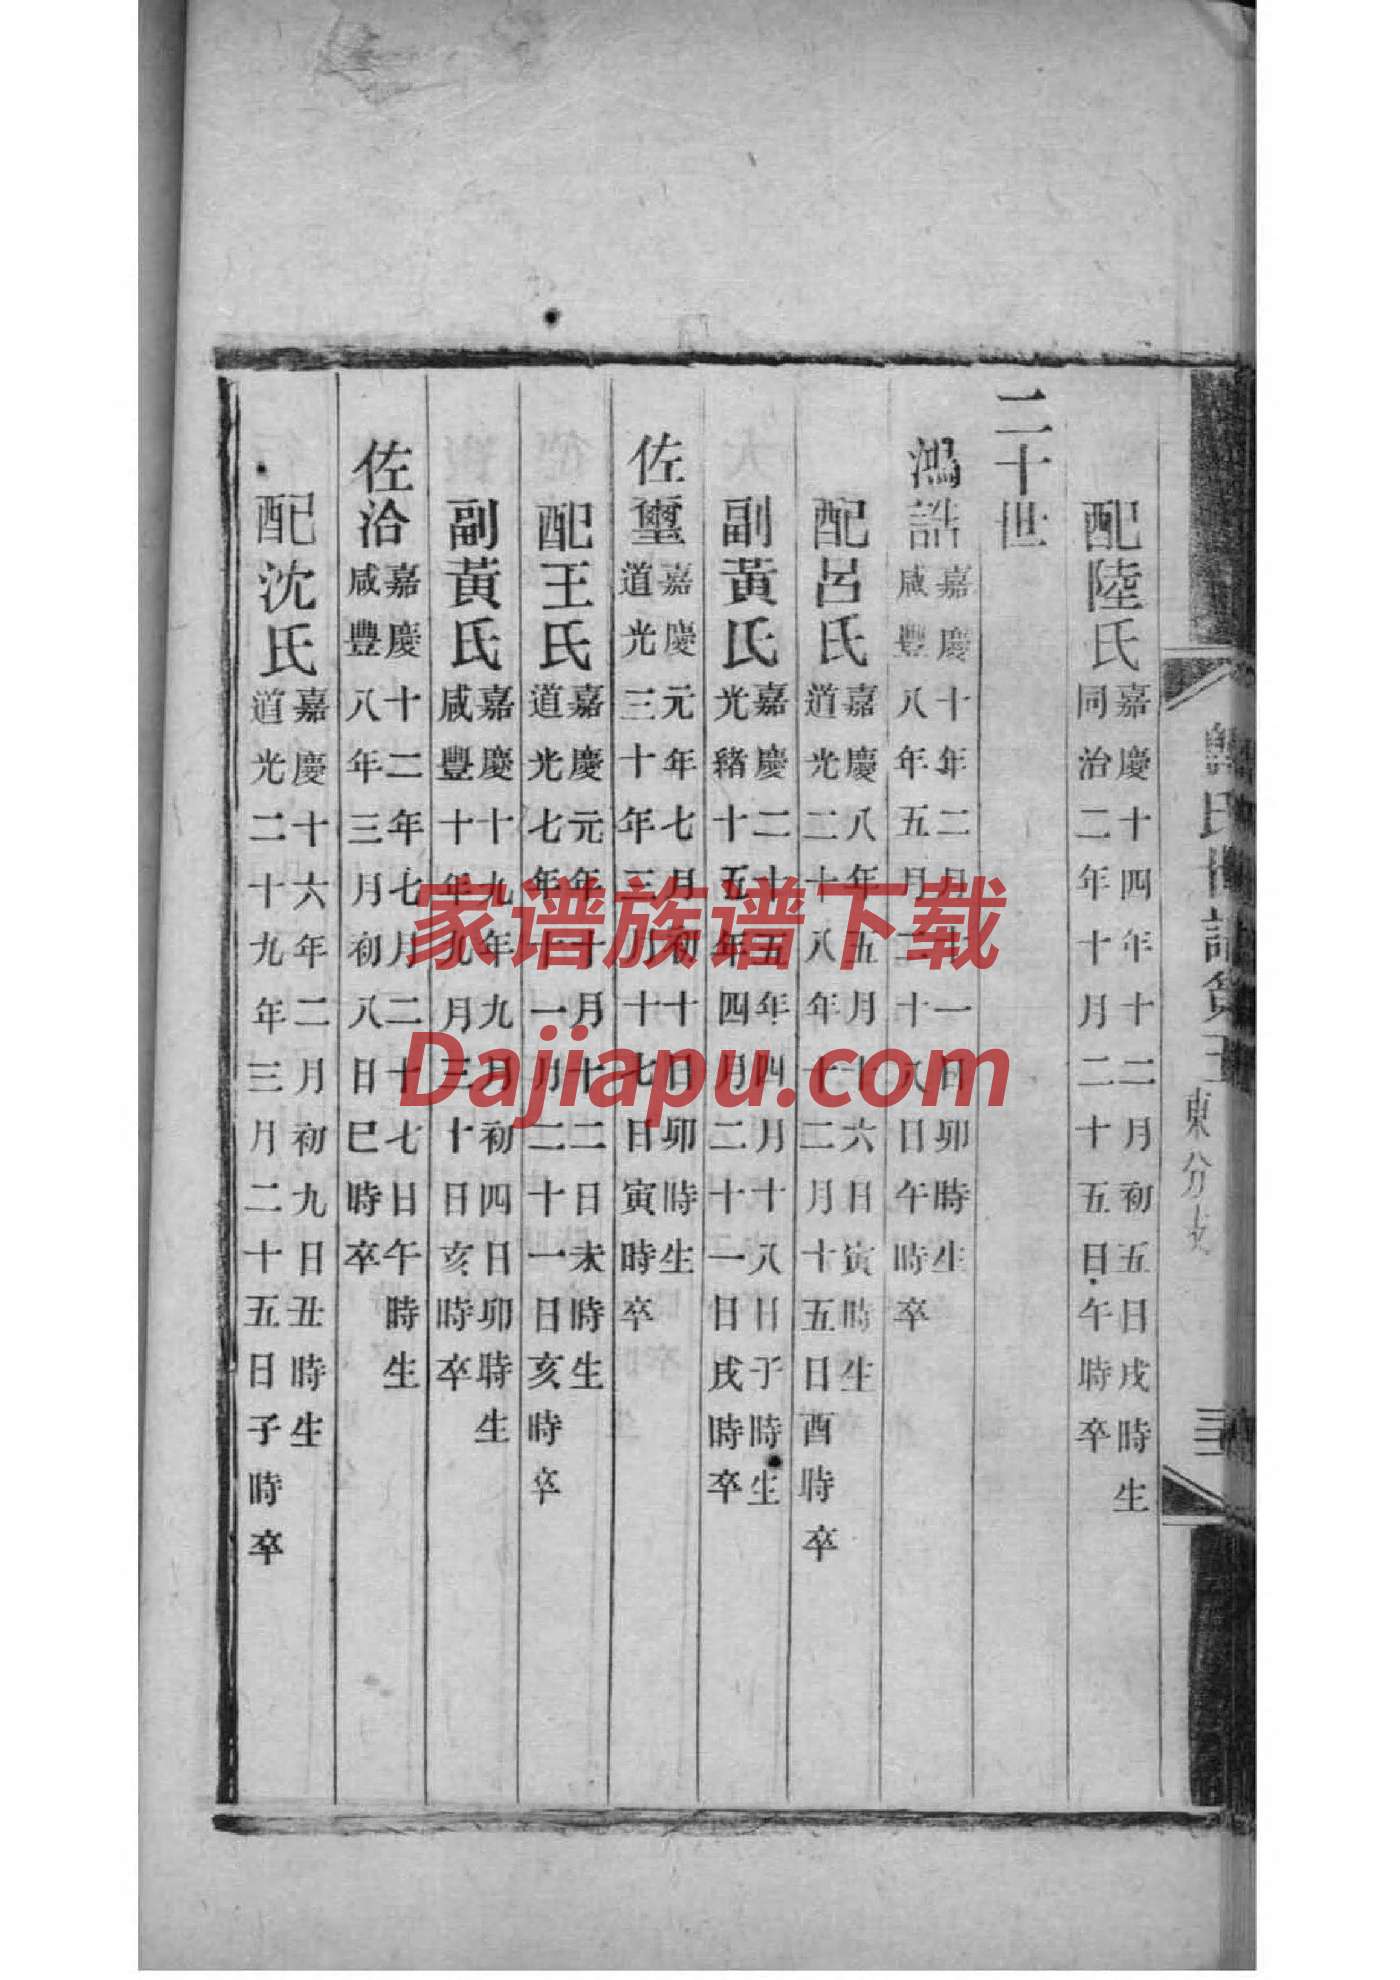 配陸氏
嘉慶十四年十二月初五日戌時生
同治二年十月二十五日午時卒
二十世
鴻誥
嘉慶十年二月十一日卯時生
咸豐八年五月二十八日午時卒
配呂氏
嘉慶八年五月十六日寅時生
道光二十八年十二月十五日酉時卒
副黃氏
嘉慶二十五年四月十八日子時生
光緒十五年四月二十一日戌時卒
佐璽
嘉慶元年七月初十日卯時生
道光三十年三月十七日寅時卒
配王氏
嘉慶元年十月十二日未時生
道光七年十一月二十一日亥時卒
副黃氏
嘉慶十九年九月初四日卯時生
咸豐十年九月三十日亥時卒
佐洽
嘉慶十二年七月二十七日午時生
咸豐八年三月初八日巳時卒
配沈氏
嘉慶十六年二月初九日丑時生
道光二十九年三月二十五日子時卒
東分支
家谱族谱下载
Dajiapu.com